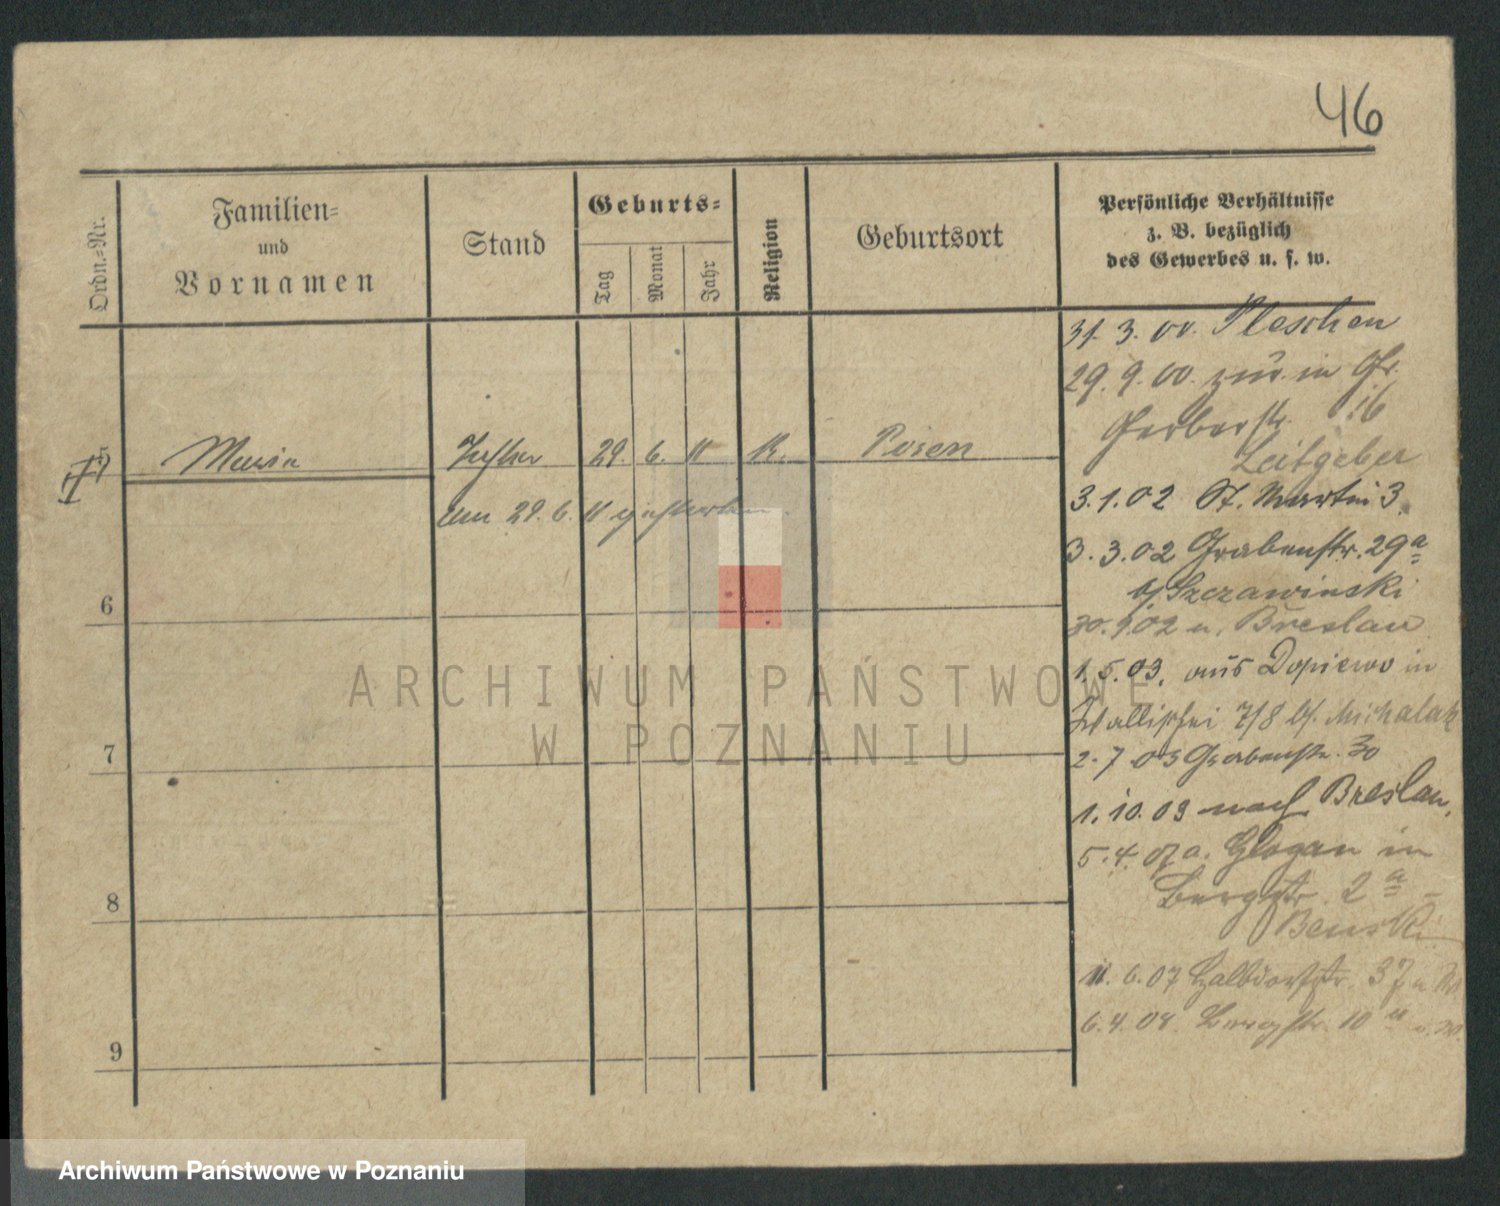 46
Ordn.-Nr.
Familien-
und
Vornamen
Stand
Geburts-
Tag
Monat
Jahr
Religion
Geburtsort
Persönliche Verhältnisse
z. B. bezüglich
des Gewerbes u. s. w.
5
Maria
Tochter
29. 6. 11
K.
Posen
am 29. 6. 11 gestorben.
6
7
8
9
31. 3. 00. Pleschen
29. 9. 00. zur. in
Gerberstr. 16
Leitgeber
3. 1. 02 St. Martin 3.
3. 3. 02 Grabenstr. 29a
b/ Szczawinski
30. 9. 02 n. Breslau
1. 5. 03. aus Dopiewo in
Wallischei 7/8 b/. Michalak
2. 7. 03 Grabenstr. 30
1. 10. 03 nach Breslau.
5. 4. 07 a. Glogau in
Bergstr. 2a
Benski
11. 6. 07 Halbdorfstr. 37
6. 4. 08. Bergstr. 10
ARCHIWUM PAŃSTWOWE
W POZNANIU
Archiwum Państwowe w Poznaniu